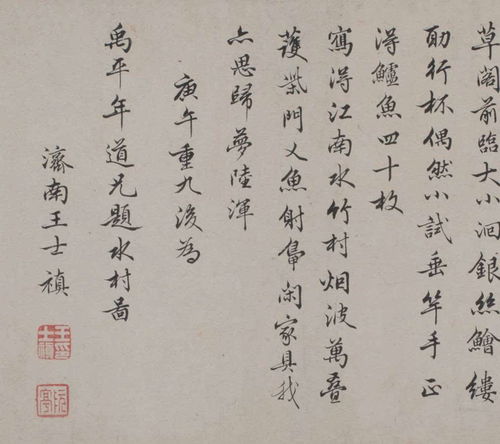 草閣前臨大小洄銀絲鱠縷
助行杯偶然小試垂竿手正
得鱸魚四十枚
寫得江南水竹村烟波萬疊
護柴門叉魚射鳧閑家具我
亦思歸夢陸渾
庚午重九後為
禹平年道兄題水村啚
濟南王士禛
王印士禛
阮亭